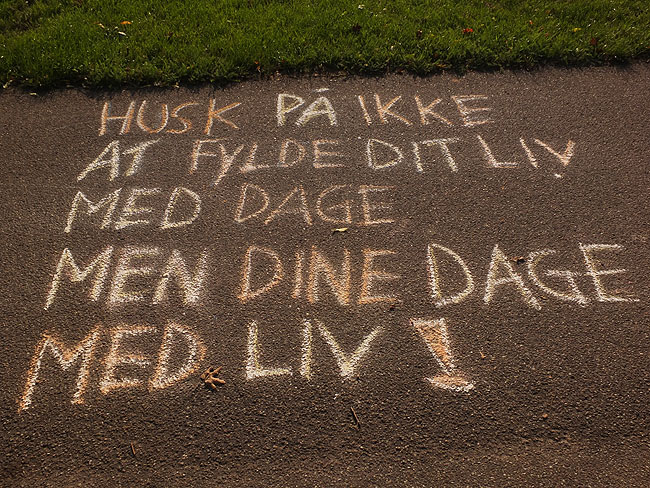 HUSK PÅ IKKE
AT FYLDE DIT LIV
MED DAGE
MEN DINE DAGE
MED LIV!